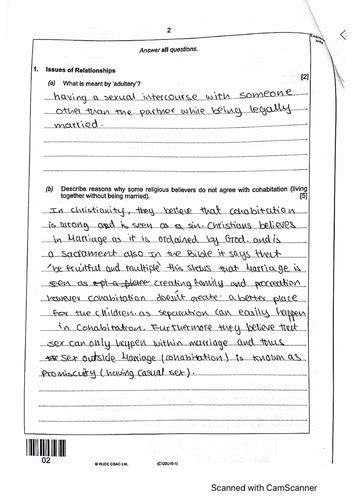 2
Answer all questions.
1. Issues of Relationships
[2]
(a) What is meant by 'adultery'?
having a sexual intercourse with someone
other than the partner while being legally
married.
(b) Describe reasons why some religious believers do not agree with cohabitation (living
together without being married). [5]
In christianity, they believe that cohabitation
is wrong and is seen as a sin. Christians believes
in Marriage as it is ordained by God. and is
a Sacrament also In the Bible it says that
'be fruitful and multiple' this shows that Marriage is
seen as creating family and procreation
however cohabitation doesn't create a better place
for the children as separation can easily happen
in Cohabitation. Furthermore they believe that
sex can only happen within marriage and thus
sex outside Marriage (cohabitation) is known as
Promiscuity (having casual sex).
02
© WJEC CBAC Ltd.
(C120U10-1)
Scanned with CamScanner